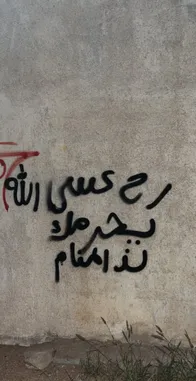 رح عسى الله
يحرمك
لذ المنام